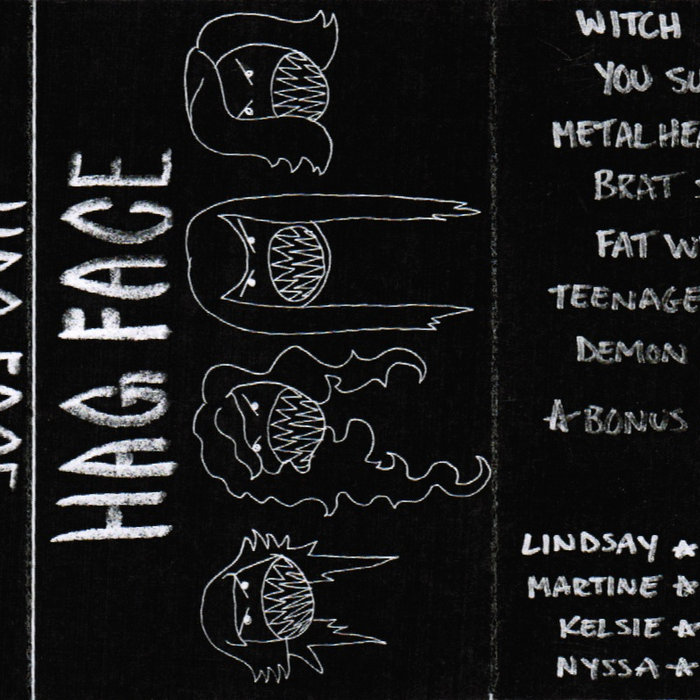 HAG FACE
WITCH
YOU SU
METALHEA
BRAT
FAT W
TEENAGE
DEMON
A BONUS
LINDSAY ☆
MARTINE ☆
KELSIE ☆
NYSSA ☆